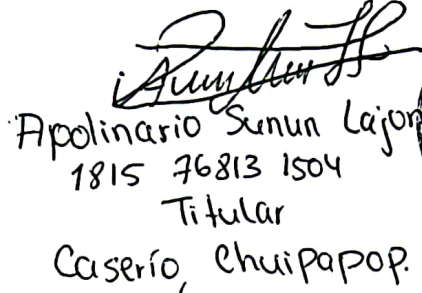 Apolinario Sunun Lajon
1815 76813 1504
Titular
Caserío, Chuipapop.